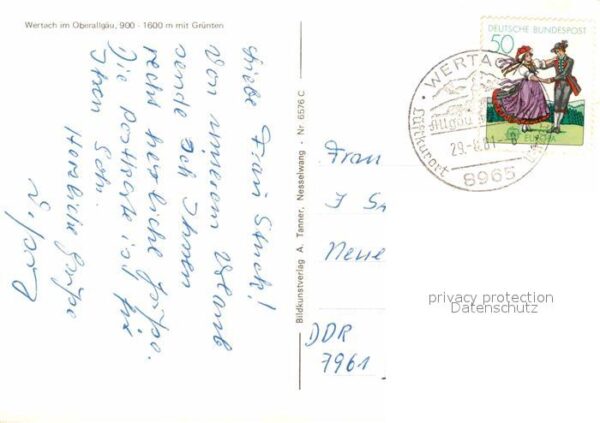 Wertach im Oberallgäu, 900 - 1600 m mit Grünten
Liebe Frau Stuch!
Von unserem Urlaub
sende ich Ihnen
recht herzliche Grüße.
Die Postkarte ist für
Ihren Sohn.
Herzliche Grüße
Bildkunstverlag A. Tanner, Nesselwang · Nr 6576 C
DEUTSCHE BUNDESPOST
50
EUROPA
WERTACH
Allgäu
29.-6.81-8
Luftkurort
8965
Frau
Neue
DDR
7961
privacy protection
Datenschutz